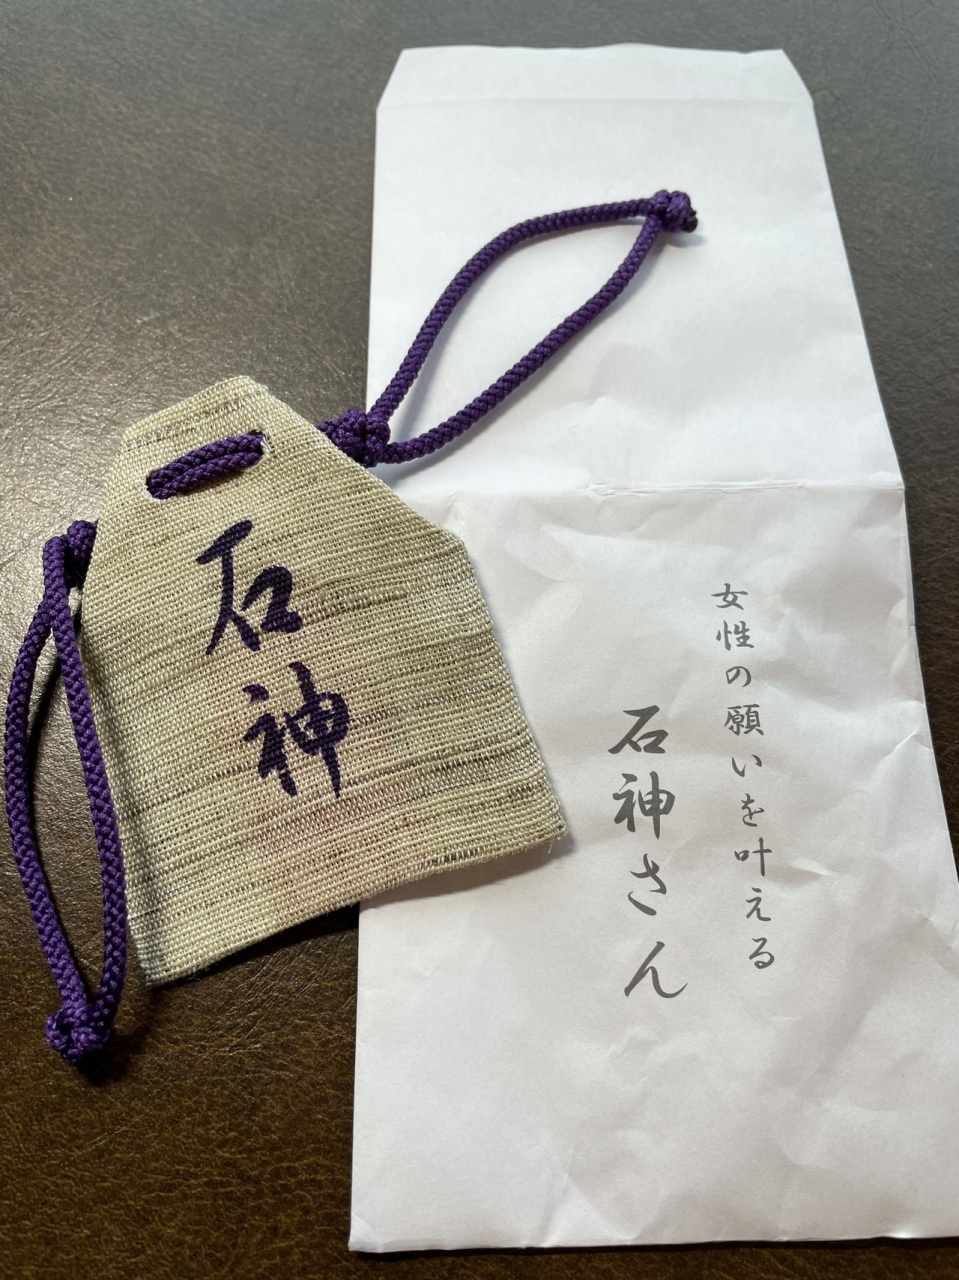 石神
女性の願いを叶える
石神さん